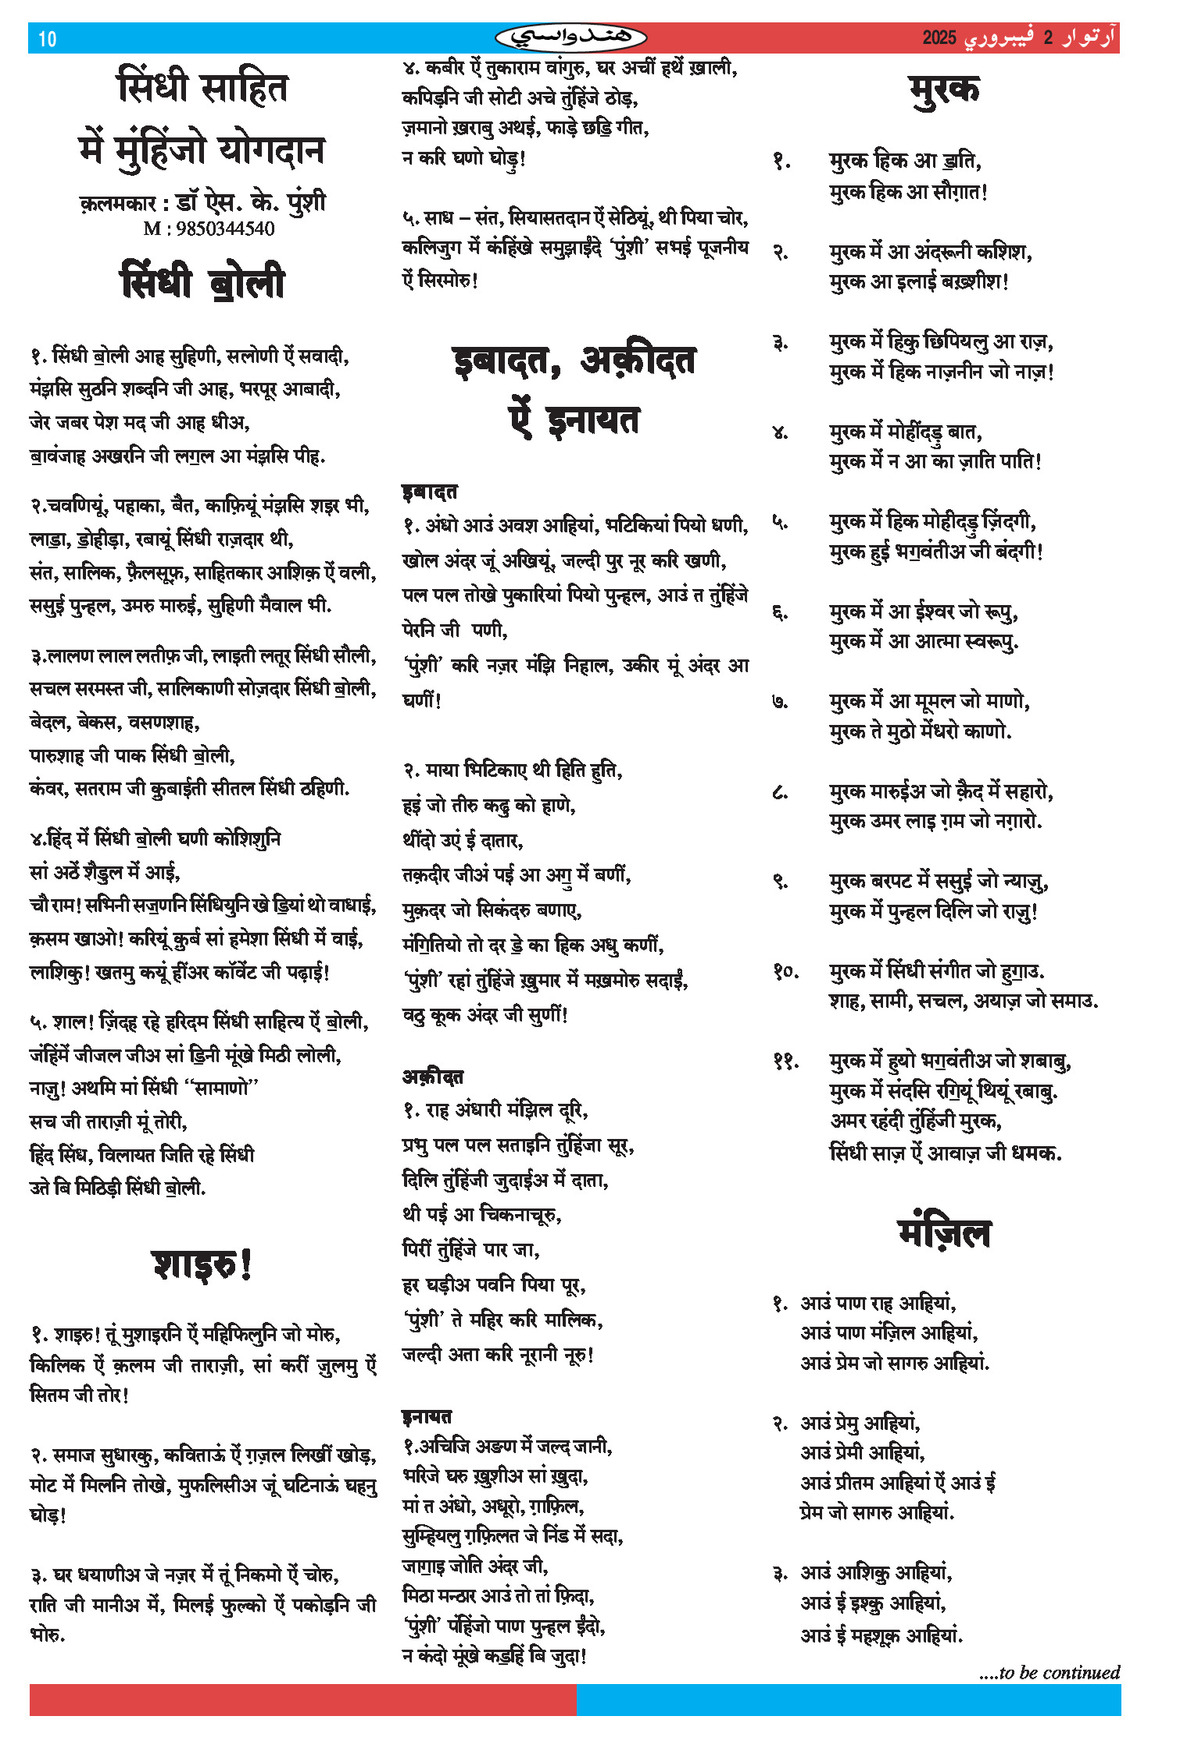 10
هندواسي
آرتوار 2 فيبروري 2025
सिंधी साहित
में मुंहिंजो योगदान
क़लमकार : डॉ ऐस. के. पुंशी
M : 9850344540
सिंधी ब॒ोली
१. सिंधी ब॒ोली आह सुहिणी, सलोणी ऐं सवादी,
मंझसि सुठनि शब्दनि जी आह, भरपूर आबादी,
जेर जबर पेश मद जी आह धीअ,
ब॒ावंजाह अखरनि जी लग॒ल आ मंझसि पीह.
२.चवणियूं, पहाका, बैत, काफ़ियूं मंझसि शइर भी,
लाड॒ा, ड॒ोहीड़ा, रबायूं सिंधी राज़दार थी,
संत, सालिक, फ़ैलसूफ़, साहितकार आशिक़ ऐं वली,
ससुई पुन्हल, उमरु मारुई, सुहिणी मैवाल भी.
३.लालण लाल लतीफ़ जी, लाइती लतूर सिंधी सौली,
सचल सरमस्त जी, सालिकाणी सोज़दार सिंधी ब॒ोली,
बेदल, बेकस, वसणशाह,
पारुशाह जी पाक सिंधी ब॒ोली,
कंवर, सतराम जी कुबाईती सीतल सिंधी ठहिणी.
४.हिंद में सिंधी ब॒ोली घणी कोशिशुनि
सां अठें शैडुल में आई,
चौ राम! सभिनी सज॒णनि सिंधियुनि खे ड॒ियां थो वाधाई,
क़सम खाओ! करियूं क़ुर्ब सां हमेशा सिंधी में वाई,
लाशिकु! खतमु कयूं हींअर कॉवेंट जी पढ़ाई!
५. शाल! ज़िंदह रहे हरिदम सिंधी साहित्य ऐं ब॒ोली,
जंहिंमें जीजल जीअ सां ड॒िनी मूंखे मिठी लोली,
नाज़ु! अथमि मां सिंधी “सामाणो”
सच जी ताराज़ी मूं तोरी,
हिंद सिंध, विलायत जिति रहे सिंधी
उते बि मिठिड़ी सिंधी ब॒ोली.
शाइरु!
१. शाइरु! तूं मुशाइरनि ऐं महिफिलुनि जो मोरु,
किलिक ऐं क़लम जी ताराज़ी, सां करीं ज़ुलमु ऐं
सितम जी तोर!
२. समाज सुधारकु, कविताऊं ऐं ग़ज़ल लिखीं खोड़,
मोट में मिलनि तोखे, मुफलिसीअ जूं घटिनाऊं घहनु
घोड़!
३. घर धयाणीअ जे नज़र में तूं निकमो ऐं चोरु,
राति जी मानीअ में, मिलई फुल्को ऐं पकोड़नि जी
भोरु.
४. कबीर ऐं तुकाराम वांगुरु, घर अचीं हथें ख़ाली,
कपिड़नि जी सोटी अचे तुंहिंजे ठोड़,
ज़मानो ख़राबु अथई, फाड़े छड॒ि गीत,
न करि घणो घोड़ु!
५. साध – संत, सियासतदान ऐं सेठियूं, थी पिया चोर,
कलिजुग में कंहिंखे समुझाईंदे ‘पुंशी’ सभई पूजनीय
ऐं सिरमोरु!
इबादत, अक़ीदत
ऐं इनायत
इबादत
१. अंधो आउं अवश आहियां, भटिकियां पियो धणी,
खोल अंदर जूं अखियूं, जल्दी पुर नूर करि खणी,
पल पल तोखे पुकारियां पियो पुन्हल, आउं त तुंहिंजे
पेरनि जी पणी,
‘पुंशी’ करि नज़र मंझि निहाल, उकीर मूं अंदर आ
घणीं!
२. माया भिटिकाए थी हिति हुति,
हइं जो तीरु कढु को हाणे,
थींदो उएं ई दातार,
तक़दीर जीअं पई आ अग॒ु में बणीं,
मुक़दर जो सिकंदरु बणाए,
मंग॒ितियो तो दर ड॒े का हिक अधु कणीं,
‘पुंशी’ रहां तुंहिंजे ख़ुमार में मख़मोरु सदाईं,
वठु कूक अंदर जी सुणीं!
अक़ीदत
१. राह अंधारी मंझिल दूरि,
प्रभु पल पल सताइनि तुंहिंजा सूर,
दिलि तुंहिंजी जुदाईअ में दाता,
थी पई आ चिकनाचूरु,
पिरीं तुंहिंजे पार जा,
हर घड़ीअ पवनि पिया पूर,
‘पुंशी’ ते महिर करि मालिक,
जल्दी अता करि नूरानी नूरु!
इनायत
१.अचिजि अङण में जल्द जानी,
भरिजे घरु ख़ुशीअ सां ख़ुदा,
मां त अंधो, अधूरो, ग़ाफ़िल,
सुम्हियलु ग़फ़िलत जे निंड में सदा,
जाग॒ाइ जोति अंदर जी,
मिठा मन्ठार आउं तो तां फ़िदा,
‘पुंशी’ पंहिंजो पाण पुन्हल ईंदो,
न कंदो मूंखे कड॒हिं बि जुदा!
मुरक
१. मुरक हिक आ ड॒ाति,
मुरक हिक आ सौग़ात!
२. मुरक में आ अंदरूनी कशिश,
मुरक आ इलाई बख़्शीश!
३. मुरक में हिकु छिपियलु आ राज़,
मुरक में हिक नाज़नीन जो नाज़!
४. मुरक में मोहींदड़ु बात,
मुरक में न आ का ज़ाति पाति!
५. मुरक में हिक मोहीदड़ु ज़िंदगी,
मुरक हुई भग॒वंतीअ जी बंदगी!
६. मुरक में आ ईश्वर जो रूपु,
मुरक में आ आत्मा स्वरूपु.
७. मुरक में आ मूमल जो माणो,
मुरक ते मुठो मेंधरो काणो.
८. मुरक मारुईअ जो क़ैद में सहारो,
मुरक उमर लाइ ग़म जो नग़ारो.
९. मुरक बरपट में ससुई जो न्याज़ु,
मुरक में पुन्हल दिलि जो राज़ु!
१०. मुरक में सिंधी संगीत जो हुग॒ाउ.
शाह, सामी, सचल, अयाज़ जो समाउ.
११. मुरक में हुयो भग॒वंतीअ जो शबाबु,
मुरक में संदसि रग॒ियूं थियूं रबाबु.
अमर रहंदी तुंहिंजी मुरक,
सिंधी साज़ ऐं आवाज़ जी धमक.
मंज़िल
१. आउं पाण राह आहियां,
आउं पाण मंज़िल आहियां,
आउं प्रेम जो सागरु आहियां.
२. आउं प्रेमु आहियां,
आउं प्रेमी आहियां,
आउं प्रीतम आहियां ऐं आउं ई
प्रेम जो सागरु आहियां.
३. आउं आशिकु आहियां,
आउं ई इश्क़ु आहियां,
आउं ई महशूक़ आहियां.
....to be continued